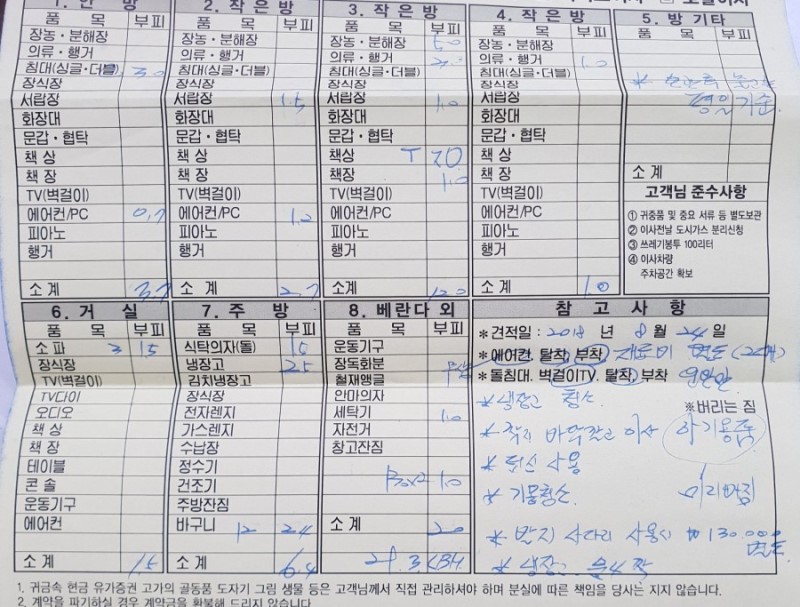 1. 안 방
품 목 부피
장농·분해장
의류·행거
침대(싱글·더블) 3.0
장식장
서랍장
화장대
문갑·협탁
책 상
책 장
TV(벽걸이)
에어컨/PC 0.7
피아노
행거
소 계 3.7
2. 작 은 방
품 목 부피
장농·분해장
의류·행거
침대(싱글·더블)
장식장
서랍장 1.5
화장대
문갑·협탁
책 상
책 장
TV(벽걸이)
에어컨/PC 1.2
피아노
행거
소 계 2.7
3. 작 은 방
품 목 부피
장농·분해장
의류·행거
침대(싱글·더블)
장식장
서랍장 1.0
화장대
문갑·협탁
책상
책 장 1.0
TV(벽걸이)
에어컨/PC
피아노
행거
소 계 12.0
4. 작 은 방
품 목 부피
장농·분해장
의류·행거 1.0
침대(싱글·더블)
장식장
서랍장
화장대
문갑·협탁
책 상
책 장
TV(벽걸이)
에어컨/PC
피아노
행거
소 계 1.0
5. 방 기 타
품 목 부피
평일기준
소 계
고객님 준수사항
① 귀중품 및 중요 서류 등 별도보관
② 이사전날 도시가스 분리신청
③ 쓰레기봉투 100리터
④ 이사차량
주차공간 확보
6. 거 실
품 목 부피
소 파 3 1.5
장식장
TV(벽걸이)
TV다이
오디오
책 상
책 장
테이블
콘 솔
운동기구
에어컨
소 계 1.5
7. 주 방
품 목 부피
식탁의자(돌) 1.5
냉장고 2.5
김치냉장고
장식장
전자렌지
가스렌지
수납장
정수기
건조기
주방잔짐
바구니 12 2.4
소 계 6.4
8. 베 란 다 외
품 목 부피
운동기구
장독회분
철재앵글
안마의자
세탁기 1.0
자전거
창고잔짐
Box2 1.0
소 계 2.0
29.3 CBM
참 고 사 항
*견적일 : 2018 년 8 월 24 일
*에어컨. 탈착, 부착 재료비 별도
*돌침대. 벽걸이TV. 탈착, 부착
*냉장고 청소
※버리는 짐
아기용품
* 기물청소
미리버림
사다리 사용시 ₩130.000
별도
* 냉장고
1. 귀금속 현금 유가증권 고가의 골동품 도자기 그림 생물 등은 고객님께서 직접 관리하셔야 하며 분실에 따른 책임을 당사는 지지 않습니다.
2. 계약을 파기하실 경우 계약금을 환불해 드리지 않습니다